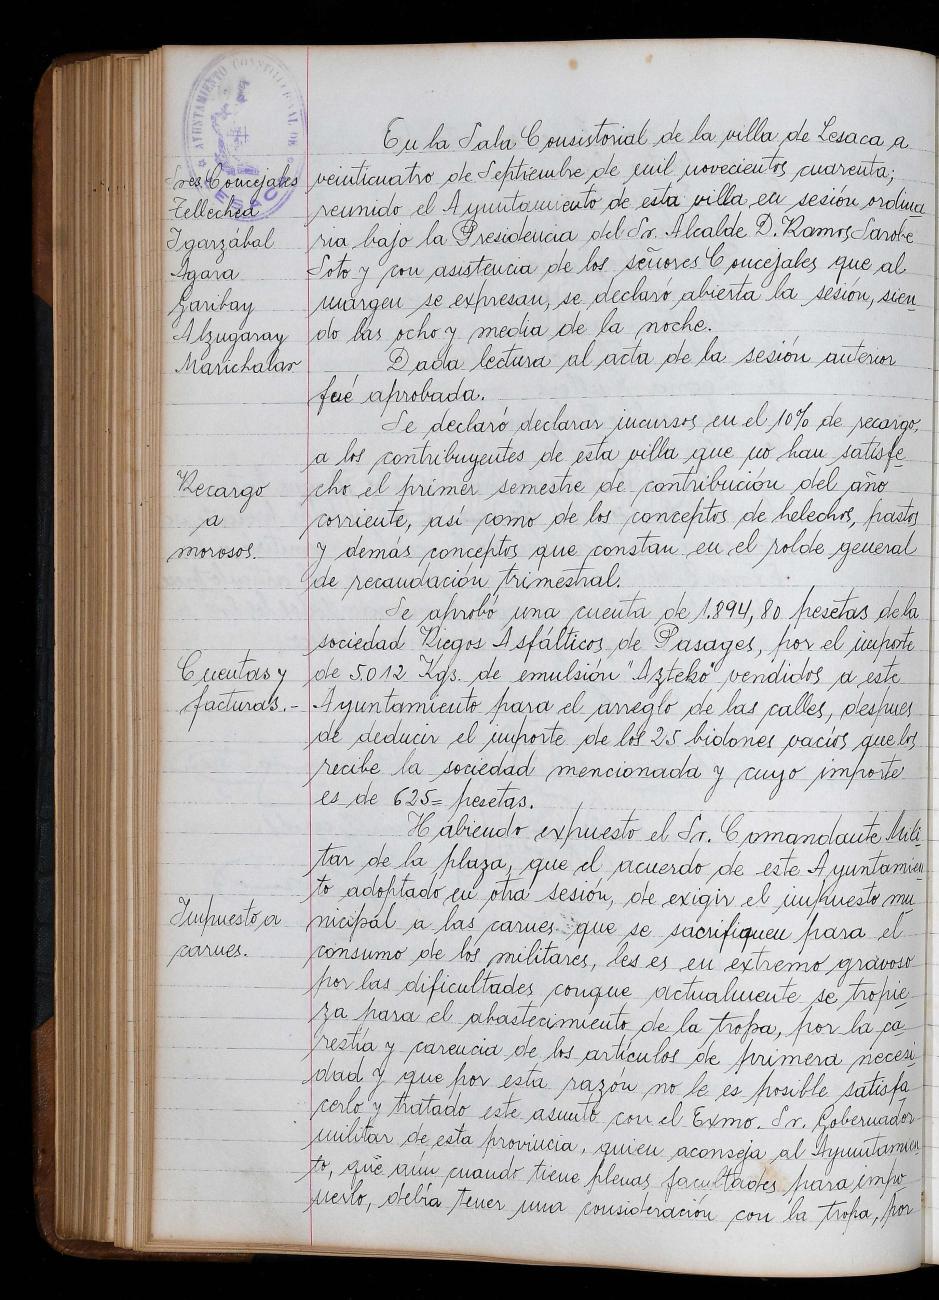 AYUNTAMIENTO CONSTITUCIONAL DE
LESACA
Sres Concejales
Tellechea
Igarzábal
Agara
Garibay
Alzugaray
Marichalar
En la Sala Consistorial de la villa de Lesaca a
veinticuatro de Septiembre de mil novecientos cuarenta;
reunido el Ayuntamiento de esta villa en sesión ordina
ria bajo la Presidencia del Sr. Alcalde D. Ramos Sarobe
Soto y con asistencia de los señores Concejales que al
margen se expresan, se declaró abierta la sesión, sien
do las ocho y media de la noche.
Dada lectura al acta de la sesión anterior
fué aprobada.
Recargo
a
morosos.
Se declaró declarar incursos en el 10% de recargo,
a los contribuyentes de esta villa que no han satisfe
cho el primer semestre de contribución del año
corriente, así como de los conceptos de helechos, pastos
y demás conceptos que constan en el rolde general
de recaudación trimestral.
Cuentas y
facturas.-
Se aprobó una cuenta de 1.894,80 pesetas de la
sociedad Riegos Asfálticos de Pasages, por el importe
de 5.012 Kgs. de emulsión "Azteko" vendidos a este
Ayuntamiento para el arreglo de las calles, despues
de deducir el importe de los 25 bidones vacíos que los
recibe la sociedad mencionada y cuyo importe
es de 625= pesetas.
Impuesto a
carnes.
Habiendo expuesto el Sr. Comandante Mili
tar de la plaza, que el acuerdo de este Ayuntamien
to adoptado en otra sesion, de exigir el impuesto mu
nicipal a las carnes que se sacrifiquen para el
consumo de los militares, les es en extremo gravoso
por las dificultades conque actualmente se tropie
za para el abastecimiento de la tropa, por la ca
restía y carencia de los artículos de primera necesi
dad y que por esta razón no le es posible satisfa
cerlo y tratado este asunto con el Exmo. Sr. Gobernador
militar de esta provincia, quien aconseja al Ayuntamien
to, que aún cuando tiene plenas facultades para impo
nerlo, debía tener una consideración con la tropa, por